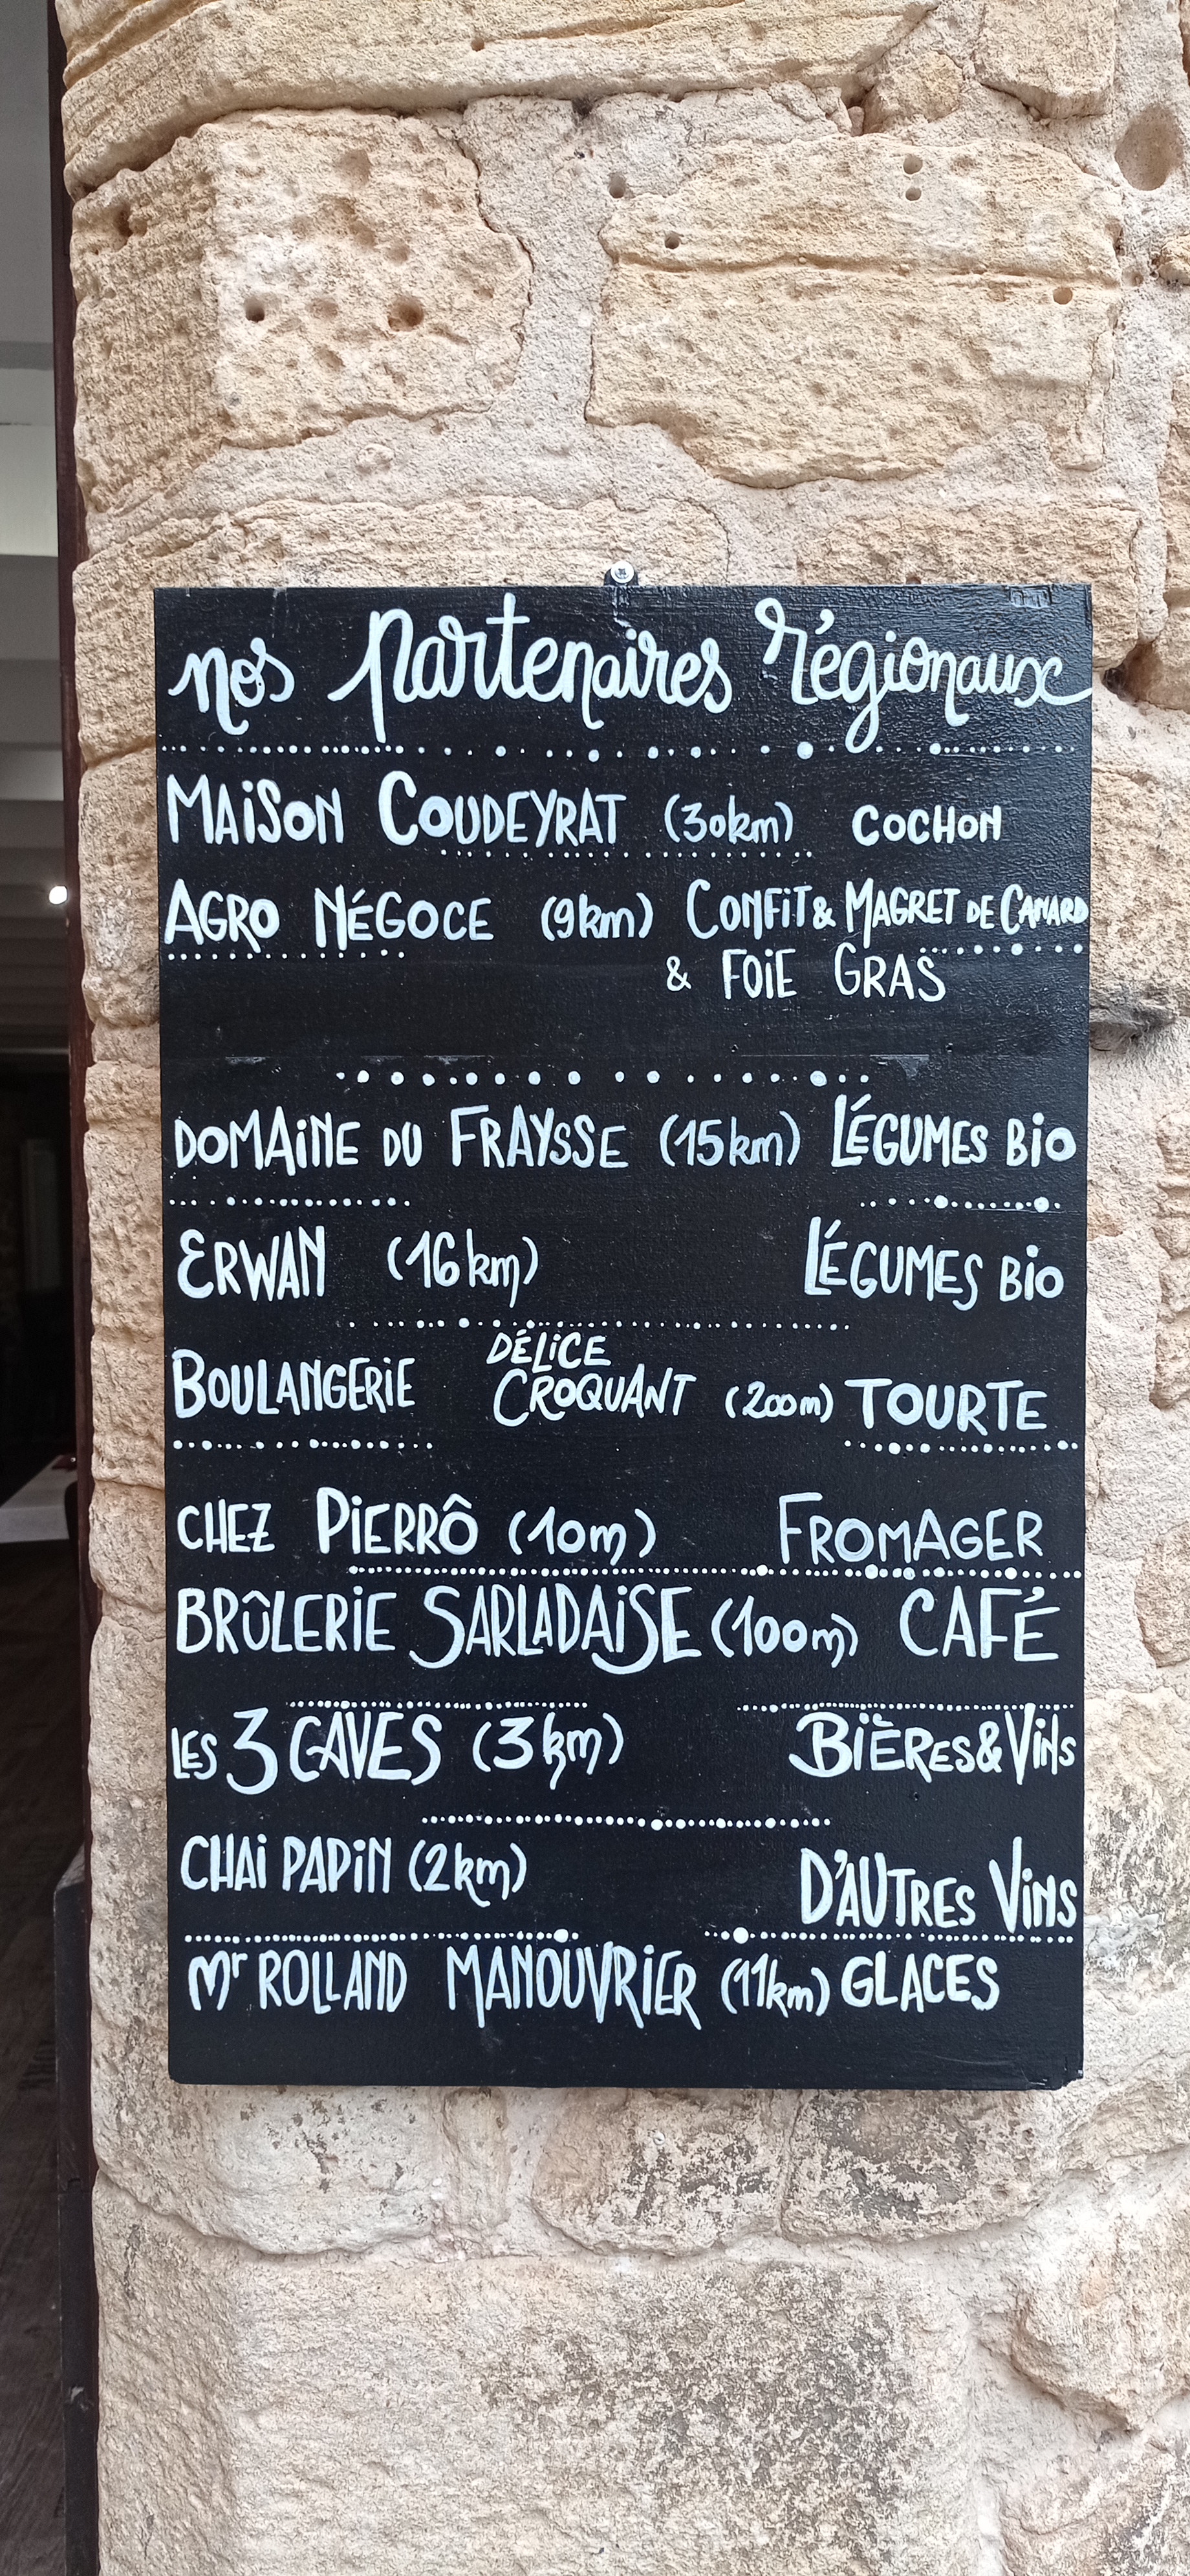 nos partenaires régionaux
MAiSON COUDEYRAT (30km) COCHON
AGRO NÉGOCE (9km) CONFiT & MAGRET DE CANARD
& FOiE GRAS
DOMAiNE DU FRAYSSE (15km) LÉGUMES BiO
ERWAN (16km) LÉGUMES BiO
BOULANGERiE DÉLiCE CROQUANT (200m) TOURTE
CHEZ PiERRÔ (10m) FROMAGER
BRÛLERiE SARLADAiSE (100m) CAFÉ
LES 3 CAVES (3km) BiÈRES & ViNS
CHAi PAPiN (2km) D'AUTRES ViNS
Mr ROLLAND MANOUVRiER (11km) GLACES